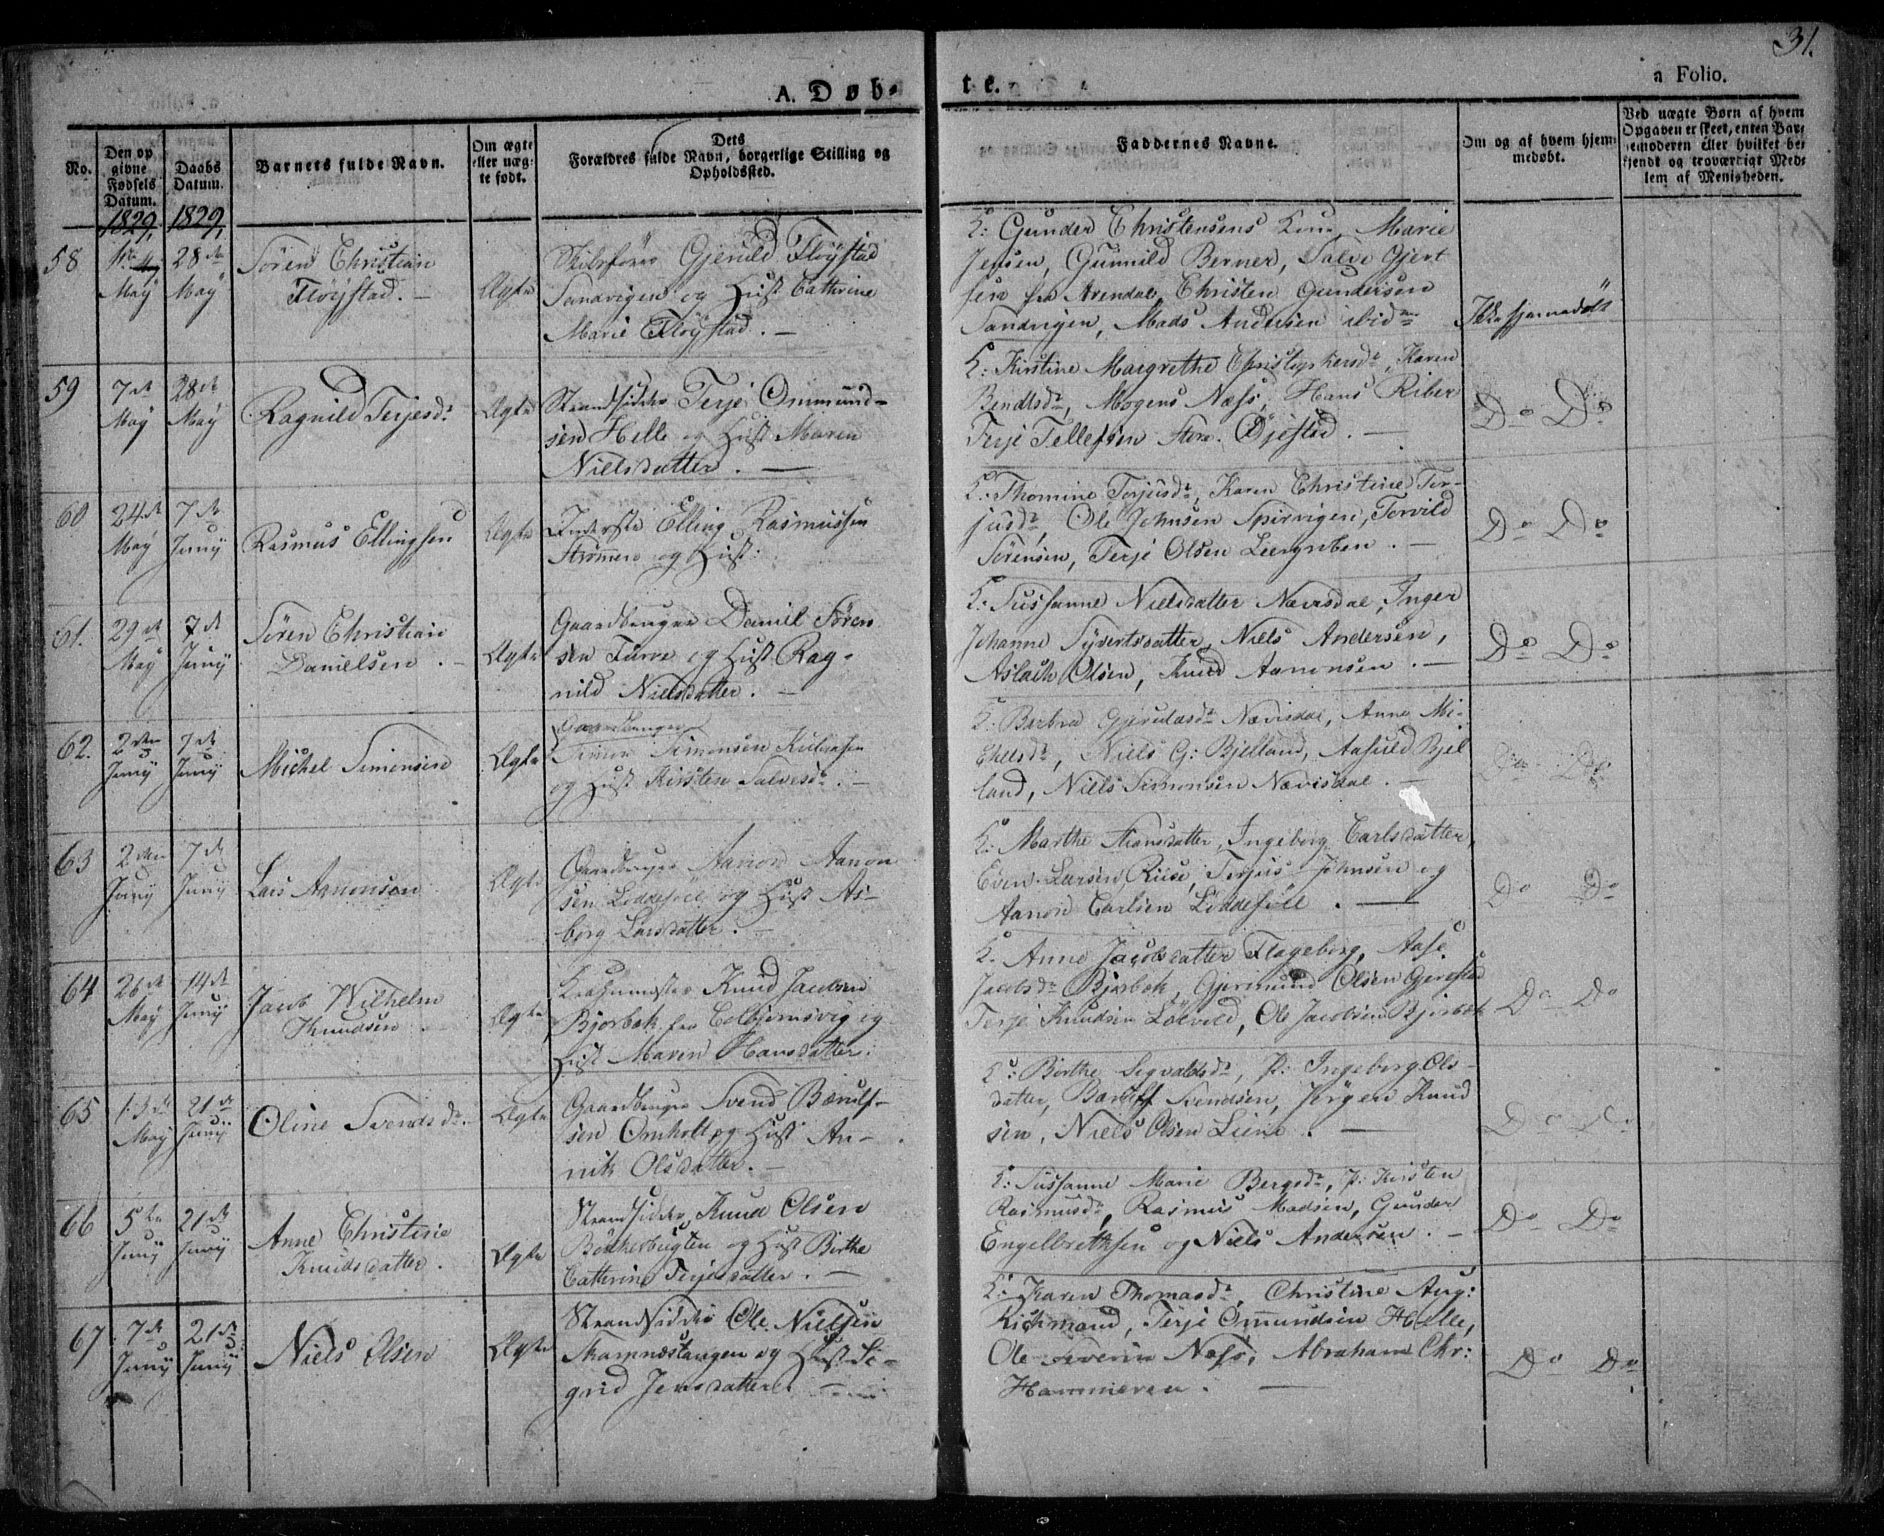 31.
A. Døb-
te.
a Folio.
No.
Den op
givne
Fødsels
Datum.
Daabs
Datum.
Barnets fulde Navn.
Om ægte
eller uæg-
te født.
Dets
Forældres fulde Navn, borgerlige Stilling og
Opholdssted.
Faddernes Navne.
Om og af hvem hjem-
medøbt.
Ved uægte Børn af hvem
Opgaven er skeet, enten Bar-
nemoderen eller hvilket be-
kjendt og troværdigt Med-
lem af Menigheden.
1829,
1829,
58
May
28de
May
Sören Christian
Fløystad. —
Ægte
Skibsfører Gjeruld Fløystad
Sandvigen og Hust Cathrine
Marie Fløystad. —
F: Gunder Christensens Kone, Marie
Jensen, Gunnild Berner, Salve Gjert
sen fra Arendal, Christen Gundersen
Sandvigen, Mads Andersen ibidm
Ikke hjemmedøbt
59
7de
May
28de
May
Ragnild Terjesdr
Ægte
Strandsidder Terje Ommund-
sen Helle og Hust Maren
Nielsdatter. —
F: Kirstine Margrethe Christophersdr, Karen
Bendtsdr, Mogens Næss, Hans Riber
Terje Tellefsen Store Øjestad. —
Do Do
60
24de
May
7de
Juny
Rasmus Ellingsen
Ægte
Inderste Elling Rasmussen
Strømmen og Hust:
F: Thomine Terjusdr, Karen Christine Ter-
jusdr, Ole Johnsen Spirvigen, Torvild
Sörensen, Terje Olsen Leergruben. —
Do Do
61.
29de
May
7de
Juny
Sören Christian
Danielsen. —
Ægte
Gaardbruger Daniel Sören
sen Furre og Hust Rag-
nild Nielsdatter. —
F: Susanne Nielsdatter Nævisdal, Inger
Johanne Syvertsdatter, Niels Andersen,
Aslach Olsen, Knud Aanonsen. —
Do Do
62.
2den
Juny
7de
Juny
Michel Simonsen
Ægte
Gaardbruger
Simon Simonsen
og Hust Kirsten Salvesdr. —
F: Barbra Gjeruldsdr Nævisdal, Anne Mi-
chelsdr, Niels G: Bjelland, Aasuld Bjel
land, Niels Simonsen Nævisdal. —
Do Do
63
2den
Juny
7de
Juny
Lars Aanonsen
Ægte
Gaardbruger Aanon Aanon
sen Løddesöl og Hust As-
borg Larsdatter. —
F: Marthe Hansdatter, Ingeborg Carlsdatter,
Even Larsen Riise, Terjus Johnsen og
Aanon Carlsen Løddesöl. —
Do Do
64
26de
May
14de
Juny
Jacob Wilhelm
Knudsen
Ægte
Knud Jacobsen
Bjorbek fra Colbjornsvig og
Hust Maren Hansdatter.
F. Anne Jacobsdatter Flageborg, Aase
Jacobsdr Bjorbek, Gjermund Olsen Gjerestad
Terje Knudsen Lölvold, Ole Jacobsen Bjorbek
Do Do
65
13de
May
21de
Juny
Oline Svendsdr.
Ægte
Gaardbruger Svend Bærulf-
sen Omholt og Hust An-
nik Olsdatter. —
F: Birthe Sigvaldsdr, p: Ingeborg Ols-
datter, Bærulf Svendsen, Jörgen Knud
sen, Niels Olsen Liene. —
Do Do
66
5te
Juny
21de
Juny
Anne Christine
Knudsdatter.
Ægte
Strandsidder Knud Olsen
Bökkerbugten og Hust Birthe
Cathrine Terjesdatter. —
F: Susanne Marie Bergsdr, p: Kirsten
Rasmusdr, Rasmus Madsen, Gunder
Engelbrethsen og Niels Andersen. —
Do Do
67
7de
Juny
21de
Juny
Niels Olsen
Ægte
Strandsidder Ole Nielsen
Skarpnæstangen og Hust Si-
grid Jensdatter. —
F: Karen Thomasdr, Christine Aug:
Richmand, Terje Omundsen Helle,
Ole Severin Næss, Abraham Chr:
Hammeren. —
Do Do